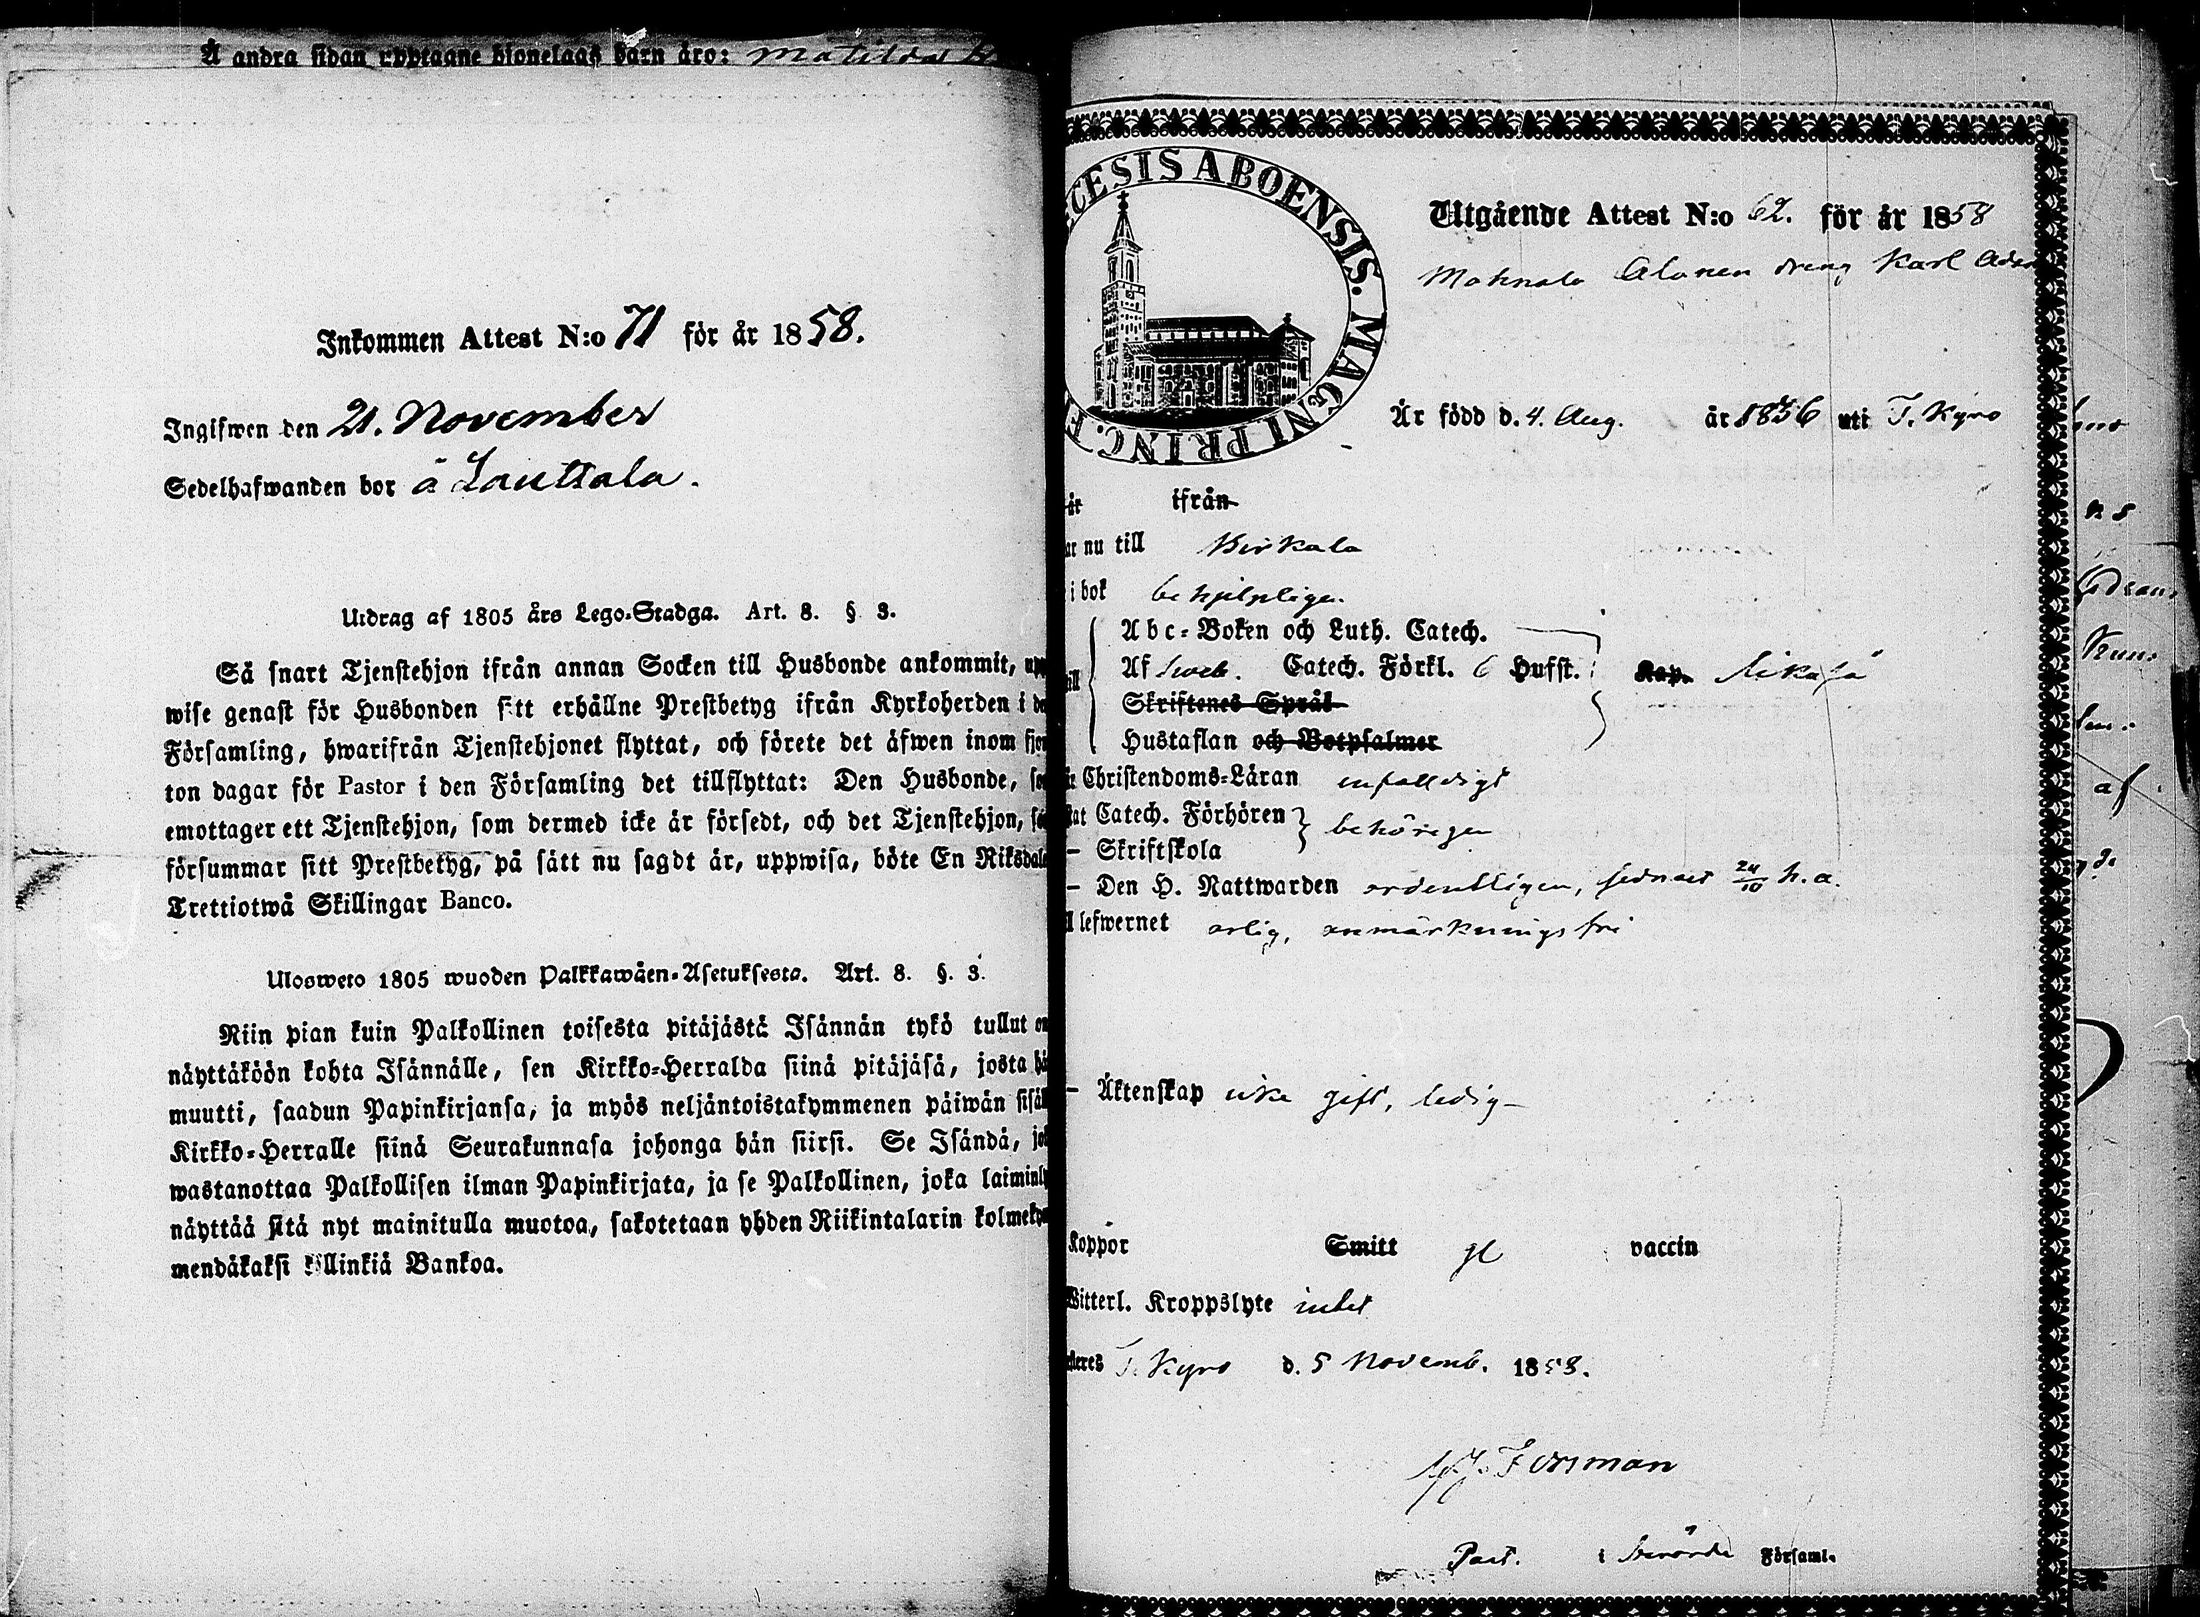 Å andra sidan upptagne hjonelags barn äro: Matilda
Inkommen Attest N:o 71 för år 1858.
Ingifwen den 21. November
Sedelhafwanden bor å Lauttala.
Utdrag af 1805 års Lego-Stadga. Art. 8. § 3.
Så snart Tjenstehjon ifrån annan Socken till Husbonde ankommit, upp
wise genast för Husbonden sitt erhållne Prestbetyg ifrån Kyrkoherden i de
Församling, hwarifrån Tjenstehjonet flyttat, och förete det äfwen inom fjor
ton dagar för Pastor i den Församling det tillflyttat: Den Husbonde, so
emottager ett Tjenstehjon, som dermed icke är försedt, och det Tjenstehjon, so
försummar sitt Prestbetyg, på sätt nu sagdt är, uppwisa, böte En Riksdale
Trettiotwå Skillingar Banco.
Ulosweto 1805 wuoden Palkkawäen-Asetuksesta. Art. 8. §. 3.
Niin pian kuin Palkollinen toisesta pitäjästä Isännän tykö tullut on
näyttäköön kohta Isännälle, sen Kirkko-Herralda siinä pitäjäsä, josta hä
muutti, saadun Papinkirjansa, ja myös neljäntoistakymmenen päiwän sisäll
Kirkko-Herralle siinä Seurakunnasa johonga hän siirsi. Se Isändä, jok
wastanottaa Palkollisen ilman Papinkirjata, ja se Palkollinen, joka laiminly
näyttää sitä nyt mainitulla muotoa, sakotetaan yhden Riikintalarin kolmeky
mendäkaksi killinkiä Bankoa.
CESIS ABOENSIS. MAGNI PRINC. F
Utgående Attest N:o 62. för år 1858
Mahnala Alanen dreng Karl Adam
Är född d. 4. Aug. år 1836 uti T. Kyro
år ifrån
ar nu till Birkala
i bok behjelpligen
Abc-Boken och Luth. Catech.
ill Af Sveb. Catech. Förkl. 6 Hufst. Kap.
Skriftenes Språk
Hustaflan och Botpsalmer
Christendoms-Läran enfalldigt
tat Catech. Förhören behörigen
- Skriftskola
- Den H. Nattwarden ordentligen, sednast 24/10 h. a.
l lefwernet ärlig, anmärkningsfri
- Äktenskap icke gift, ledig -
Koppor Smitt gl vaccin
Witterl. Kroppslyte intet
eres T. Kyro d. 5 Novemb. 1858.
Forsman
Past. i Församl.